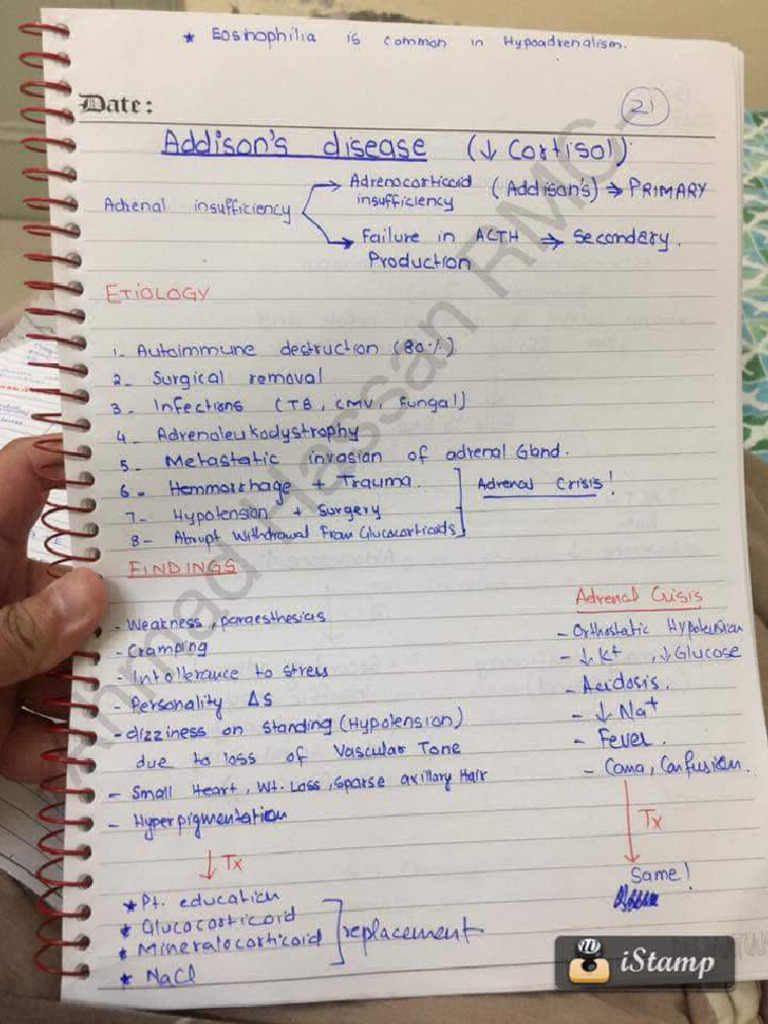 * Eosinophilia is common in Hypoadrenalism.
Date:
21
Addison's disease (↓ Cortisol)
Adrenal insufficiency
→ Adrenocorticoid insufficiency (Addison's) → PRIMARY
→ Failure in ACTH Production ⇒ Secondary.
ETIOLOGY
1- Autoimmune destruction (80%)
2- Surgical removal
3- Infections (TB, CMV, Fungal)
4- Adrenoleukodystrophy
5- Metastatic invasion of adrenal Gland.
6- Hemmorhage + Trauma.
7- Hypotension + Surgery
8- Abrupt Withdrawal From Glucocorticoids
Adrenal Crisis!
FINDINGS
- Weakness, paraesthesias
- Cramping
- Intollerance to stress
- Personality Δs
- dizziness on standing (Hypotension)
due to loss of Vascular Tone
- Small Heart, Wt. Loss, sparse axillary Hair
- Hyperpigmentation
↓ Tx
* Pt. education
* Glucocorticoid
* Mineralocorticoid
replacement
* NaCl
Adrenal Crisis
- Orthostatic Hypotension
- ↓ K+, ↓ Glucose
- Acidosis.
- ↓ Na+
- Fever.
- Coma, Confusion.
↓ Tx
Same!
Ahmad Hassan RMC
iStamp